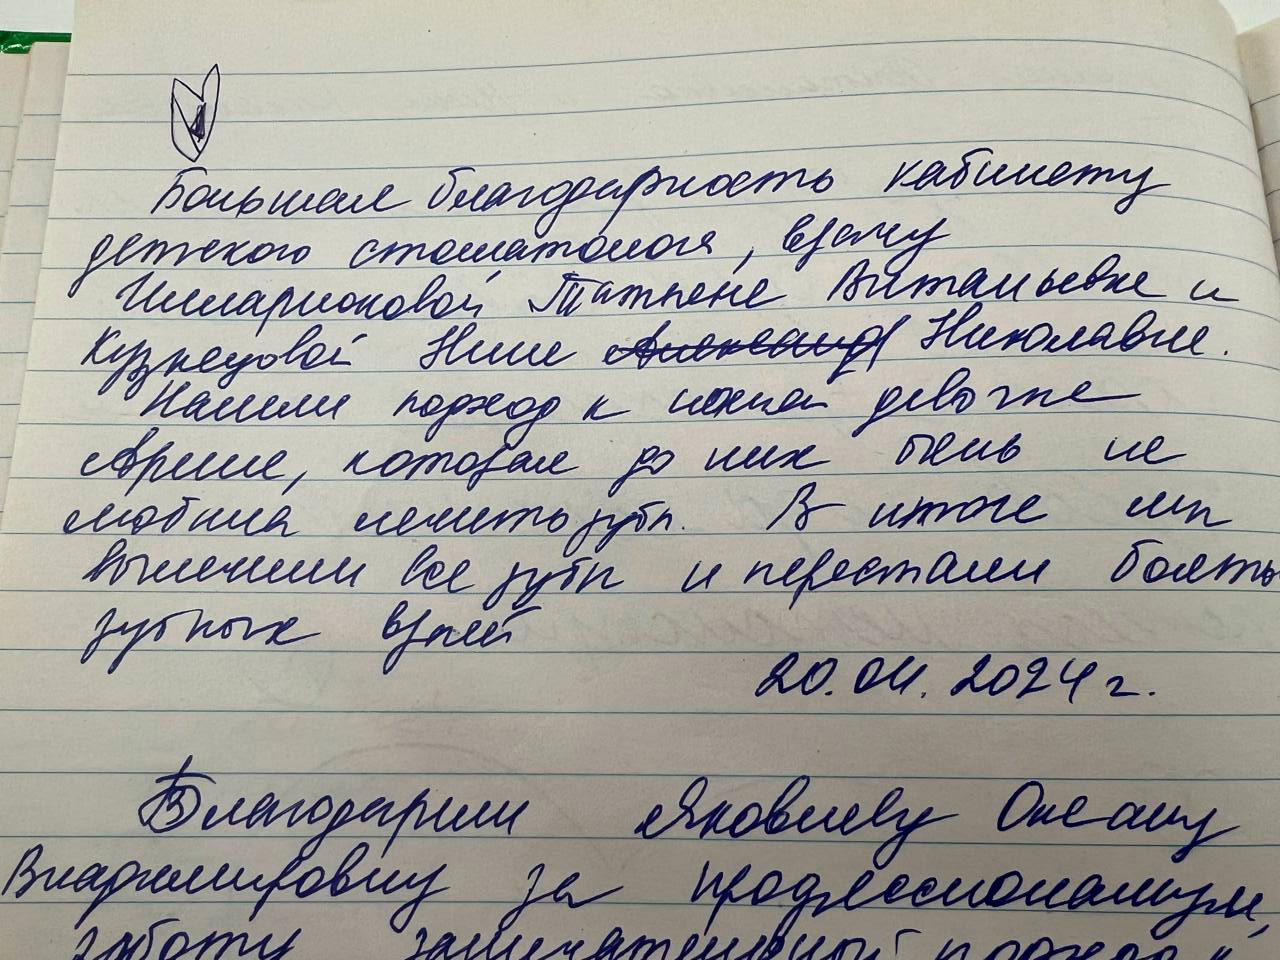 Большая благодарность кабинету
детского стоматолога, врачу
Илларионовой Татьяне Витальевне и
Кузнецовой Нине Николавне.
Нашли подход к нашей девочке
Арине, которая до них очень не
любила лечить зубы. В итоге мы
вылечили все зубы и перестали боять
зубных врачей
20.04.2024 г.
Благодарим Яковлеву Оксану
Владимировну за профессионализм,
заботу, замечательный подход и